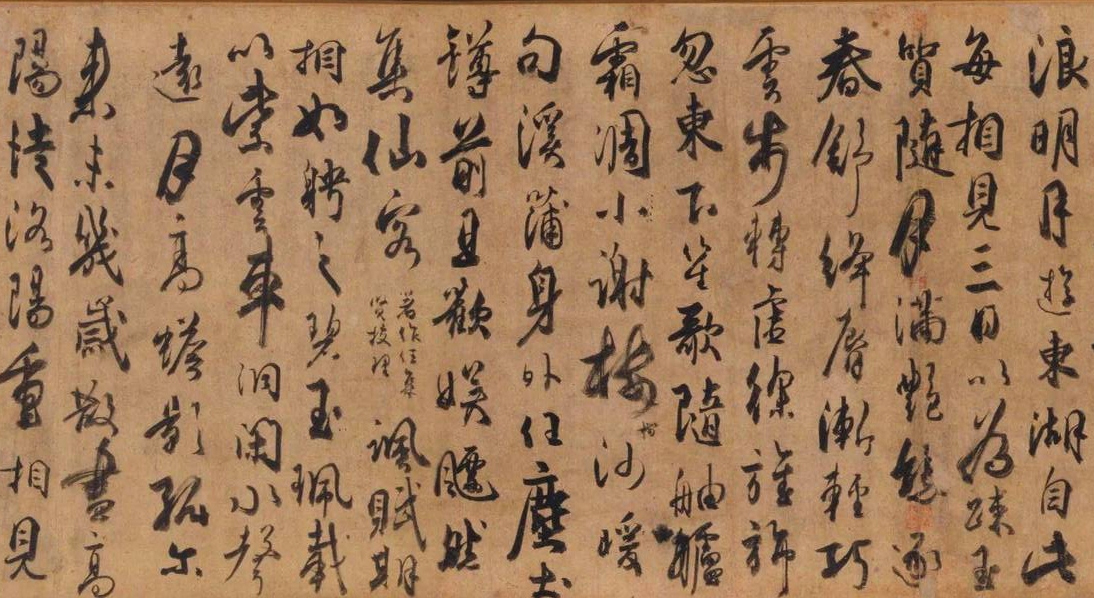 浪明月遊東湖自此
每相見三日以為踈玉
質隨月滿艷態逐
春舒絳脣漸輕巧
雲步轉虛徐旌旆
忽東下笙歌隨舳艫
霜凋小謝樹沙暖
句溪蒲身外任塵土
罇前且歡娛飄然
集仙客
著作任集
賢校理
諷賦期
相如聘之碧玉珮載
以紫雲車洞閑水聲
遠月高蟾影孤尔
來未幾歲散盡高
陽徒洛陽重相見